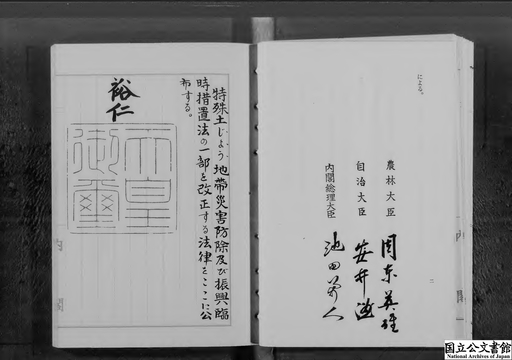 による。
農林大臣 周東英雄
自治大臣 安井謙
内閣総理大臣 池田勇人
二
特殊土じょう地帯災害防除及び振興臨
時措置法の一部を改正する法律をここに公
布する。
裕仁
天皇
御璽
内閣
国立公文書館
National Archives of Japan